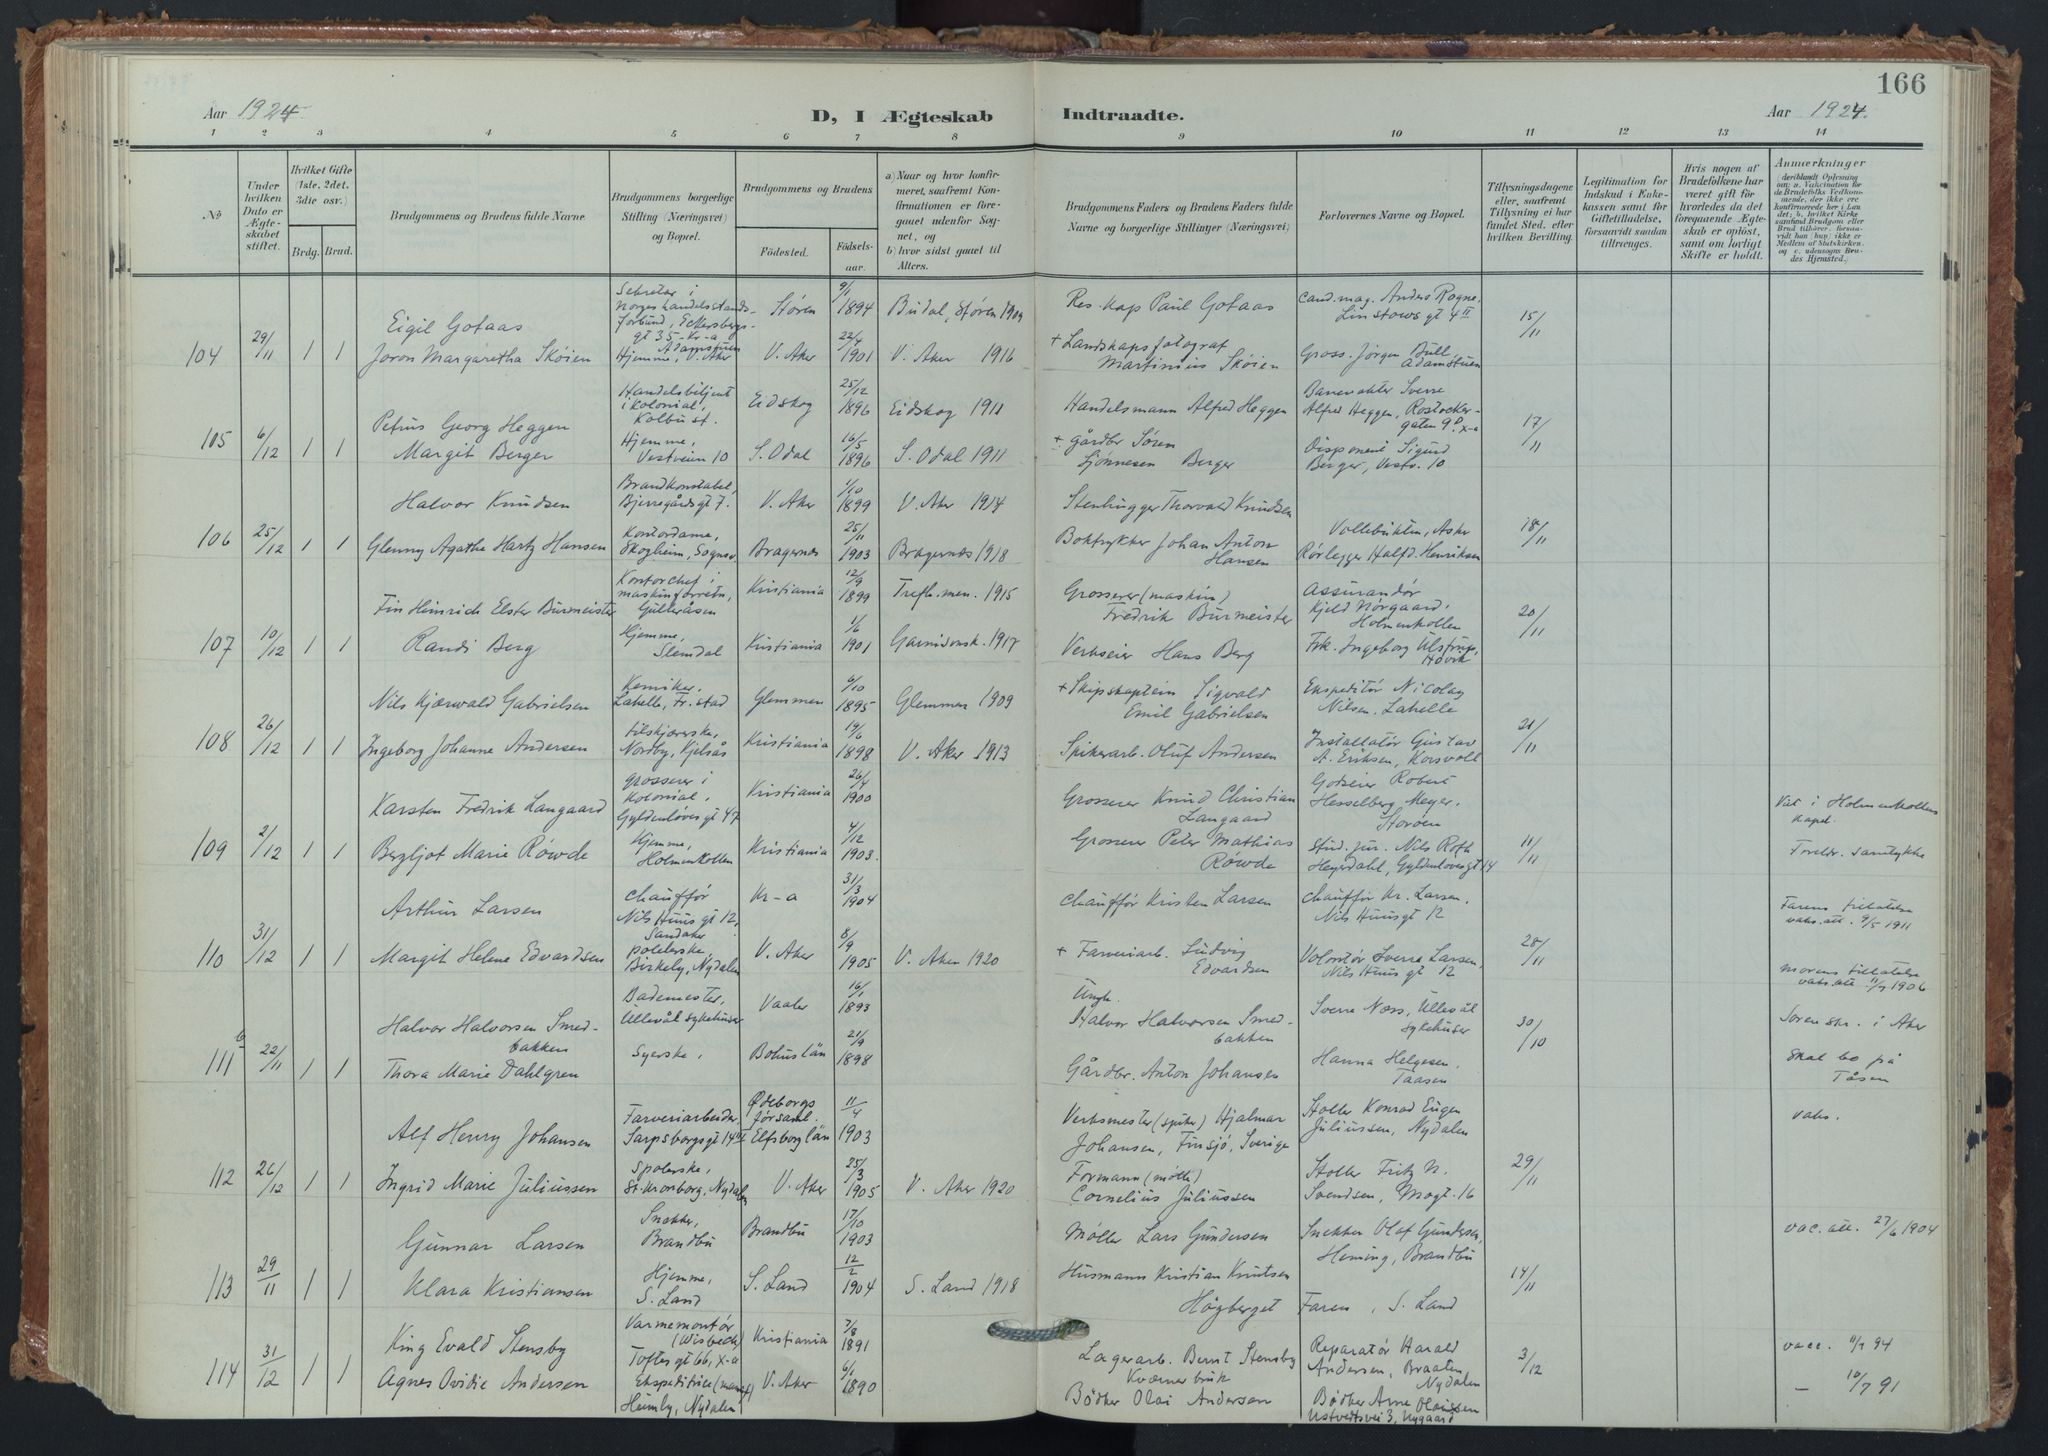 166
Aar 1924.
D, I Ægteskab Indtraadte.
Aar 1924.
1 2 3 4 5 6 7 8 9 10 11 12 13 14
No
Under hvilken Dato er Ægteskabet stiftet.
Hvilket Gifte (1ste, 2det, 3die osv.)
Brdg. Brud.
Brudgommens og Brudens fulde Navne
Brudgommens borgerlige Stilling (Næringsvei) og Bopæl.
Brudgommens og Brudens
Födested. Födselsaar.
a) Naar og hvor konfirmeret, saafremt Konfirmationen er foregaaet udenfor Sognet, og
b) hvor sidst gaaet til Alters.
Brudgommens Faders og Brudens Faders fulde Navne og borgerlige Stillinger (Næringsvei)
Forlovernes Navne og Bopæl.
Tillysningsdagene eller, saafremt Tillysning ei har fundet Sted, efter hvilken Bevilling.
Legitimation for Indskud i Enkekassen samt for Giftetilladelse, forsaavidt saadan tiltrænges.
Hvis nogen af Brudefolkene har været gift før hvorledes da det foregaaende Ægteskab er oplöst, samt om lovligt Skifte er holdt.
Anmærkninger
(deriblandt Oplysning om: a. Vakcination for de Brudefolks Vedkommende, der ikke ere konfirmerede her i Landet; b. hvilket Kirkesamfund Brudgom eller Brud tilhörer, forsaavidt han (hun) ikke er Medlem af Statskirken, og c. udensogns Brudes Hjemsted.)
104 29/11 1 1
Eigil Gotaas
Sekretær i Norges handelsstands-forbund, Eckersbergs-gt 35 Kr-a
Støren 9/1 1894 Budal, Støren 1909
Res. kap Paul Gotaas
Cand. mag. Anders Rogne, Linstows gt 4 II
15/11
Joron Margaretha Sköien
Hjemme, Adamstuen V. Aker
V. Aker 22/4 1901 V. Aker 1916
+ Landskapsfotograf Martinius Sköien
Gross. Jörgen Bull, Adamstuen
105 6/12 1 1
Petrus Georg Heggen
Handelsbetjent i kolonial, Kolbu st.
Eidskog 25/12 1896 Eidskog 1911
Handelsmann Alfred Heggen
Banevokter Sverre Alfred Heggen, Rostockergaten 9 X-a
17/11
Margit Berger
Hjemme, Vestveien 10
S. Odal 16/5 1896 S. Odal 1911
+ gårdbr Sören Berger
Disponent Sigurd Berger, Vestv. 10
106 25/12 1 1
Halvor Knudsen
Brandkonstabel, Bjerregårdsgt 7.
V. Aker 1/10 1899 V. Aker 1914
Stenhugger Thorvald Knudsen
Vollebukten, Asker
18/11
Glenny Agathe Hartz Hansen
Kontordame, Skogheim, Sognsv.
Bragernæs 25/11 1903 Bragernæs 1918
Boktrykker Johan Anton Hansen
Rörlegger Halfd. Henriksen
107 10/12 1 1
Fin Heinrich Elster Burmeister
Kontorchef i maskinforretn, Gulleråsen
Kristiania 12/9 1899 Trefh. men. 1915
Grosserer (maskin) Fredrik Burmeister
Assurandör Kjeld Nörgaard, Holmenkollen
20/11
Randi Berg
Hjemme, Slemdal
Kristiania 1/6 1901 Garnisonsk. 1917
Verkseier Hans Berg
Frk. Ingeborg Ulstrup, Hövik
108 26/12 1 1
Nils Kjærwald Gabrielsen
Kemiker, Lahelle, Fr.stad
Glemmen 6/10 1895 Glemmen 1909
+ Skipskaptein Sigvald Emil Gabrielsen
Ekspeditör Nicolay Nilsen, Lahelle
21/11
Ingeborg Johanne Andersen
tilskjærerske, Nordby, Kjelsås
Kristiania 19/6 1898 V. Aker 1913
Spikerarb. Oluf Andersen
Installatör Gustav A. Eriksen, Korsvoll
109 2/12 1 1
Karsten Fredrik Langaard
grosserer i kolonial, Gyldenlövesgt 47
Kristiania 26/4 1900
Grosserer Knud Christian Langaard
Godseier Robert Hesselberg Meyer, Storöen
11/11
Viet i Holmenkollens kapel.
Bergljot Marie Röwde
Hjemme, Holmenkollen
Kristiania 4/12 1903.
Grosserer Peter Mathias Röwde
Stud. jur. Nils Roth Heyerdahl, Gyldenlövesgt 14
Foreldr. samtykke
110 31/12 1 1
Arthur Larsen
Chauffør Nils Huus gt 12, Sandaker
Kr-a 31/3 1904
Chauffør Kristen Larsen
Chauffør Kr. Larsen, Nils Huusgt 12
28/11
Farens tillatelse vaks. att. 9/5 1911
Margit Helene Edvardsen
polererske Birkely, Nydalen
V. Aker 8/9 1905 V. Aker 1920
+ Farveriarb. Ludvig Edvardsen
Volontør Sverre Larsen, Nils Huus gt 12
Morens tillatelse vaks. att 11/7 1906
111 b 22/11 1 1
Halvor Halvorsen Smed-bakken
Bademester, Ullevål sykehuser
Vaaler 16/1 1893
Ungk. Halvor Halvorsen Smed-bakken
Sverre Næss, Ullevål sykehuser
30/10
Soren skr. i Aker
Thora Marie Dahlgren
Syerske,
Bohuslän 21/9 1898
Gårdbr. Anton Johansen
Hanna Helgesen, Taasen
Skal bo på Tåsen
112 26/12 1 1
Alf Henry Johansen
Farveriarbeider, Sarpsborggt 14 II
Ødeborgs församl. Elfsborg län 11/4 1903
Verksmester (spiker) Hjalmar Johansen, Finsjö, Sverige
Stoller Konrad Eugen Juliussen, Nydalen
29/11
vaks.
Ingrid Marie Juliussen
Spolerske, St. Kronborg, Nydalen
V. Aker 25/3 1905 V. Aker 1920
Formann (mölle) Cornelius Juliussen
Stoller Fritz N. Svendsen, Mogt. 16
113 29/11 1 1
Gunnar Larsen
Snekker, Brandbu
Brandbu 17/10 1903
Møller Lars Gundersen
Snekker Olaf Gundersen, Heming, Brandbu
14/11
vac. att. 27/6 1904
Klara Kristiansen
Hjemme, S. Land
S. Land 12/2 1904 S. Land 1918
Husmann Kristian Knutsen Högberget
Faren, S. Land
114 31/12 1 1
King Evald Stensby
Varmemontör (Wisbech) Toftesgt 66, X-a
Kristiania 7/8 1891
Lagerarb. Bernt Stensby Kværnerbruk
Reparatør Harald Andersen, Braaten, Nydalen
3/12
vacc. 11/9 94
Agnes Ovidie Andersen
Ekspeditrice Heimby, Nydalen
V. Aker 6/1 1890
Bödker Olai Andersen
Bödker Arne Olaussen Ustvedtsvei 3, Nygaard
— 10/7 91